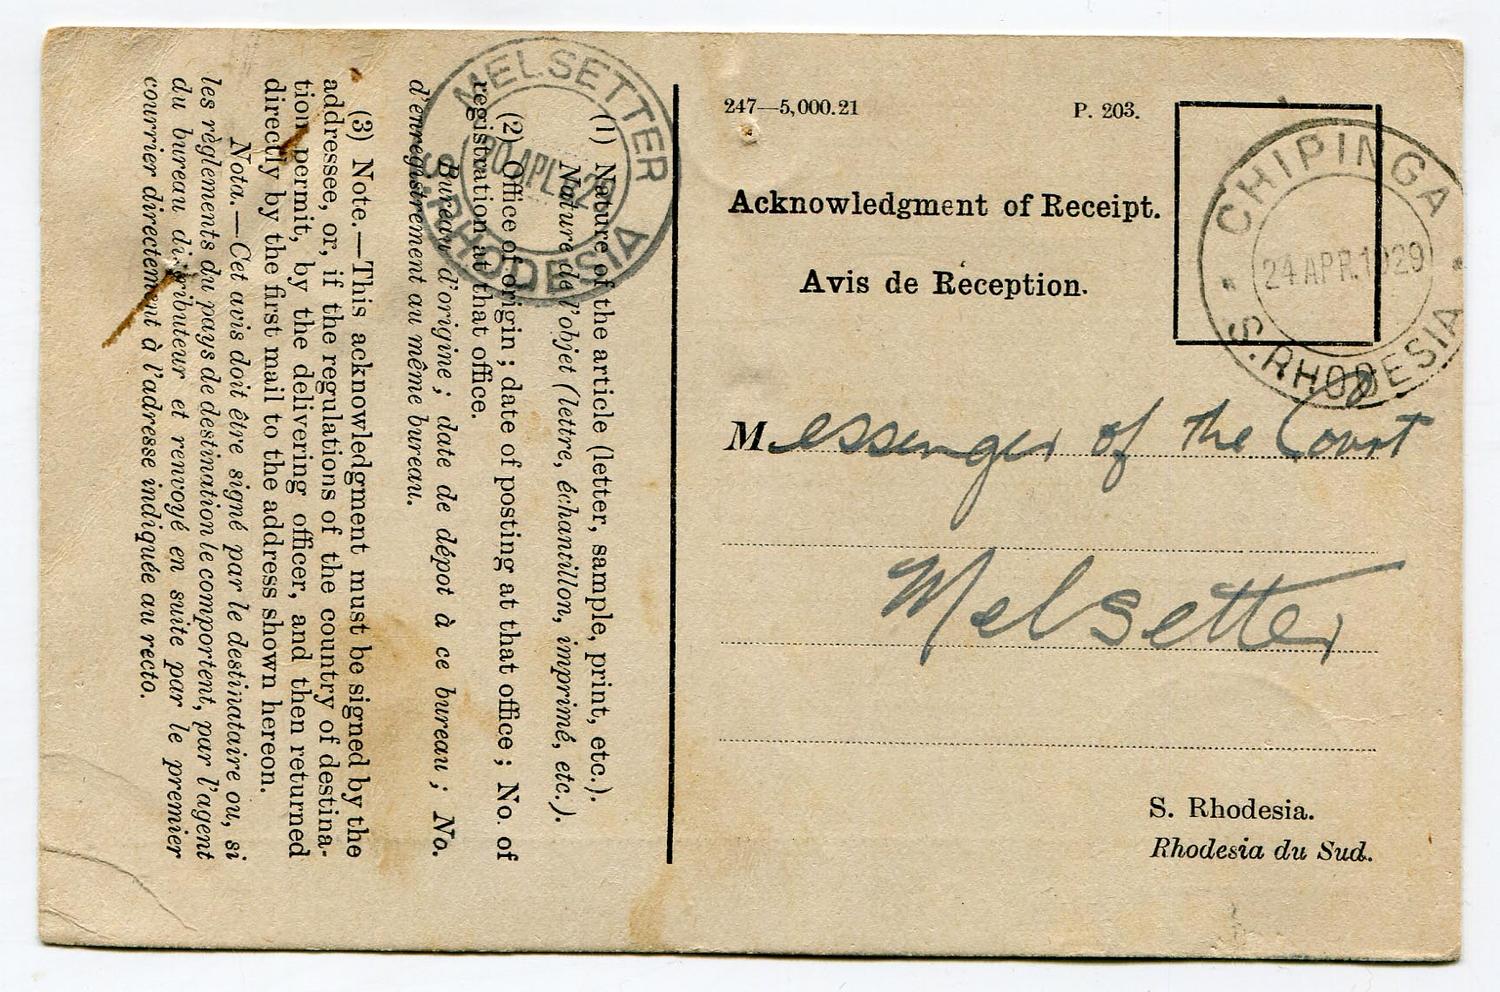 247—5,000.21
P. 203.
Acknowledgment of Receipt.
Avis de Réception.
CHIPINGA
24 APR. 1929
S. RHODESIA
Messenger of the Court
Melsetter
S. Rhodesia.
Rhodesia du Sud.
MELSETTER
S. RHODESIA
(1) Nature of the article (letter, sample, print, etc.).
Nature de l'objet (lettre, échantillon, imprimé, etc.).
(2) Office of origin ; date of posting at that office ; No. of
registration at that office.
Bureau d'origine ; date de dépot à ce bureau ; No.
d'enregistrement au même bureau.
(3) Note.—This acknowledgment must be signed by the
addressee, or, if the regulations of the country of destina-
tion permit, by the delivering officer, and then returned
directly by the first mail to the address shown hereon.
Nota.—Cet avis doit être signé par le destinataire ou, si
les règlements du pays de destination le comportent, par l'agent
du bureau distributeur et renvoyé en suite par le premier
courrier directement à l'adresse indiquée au recto.